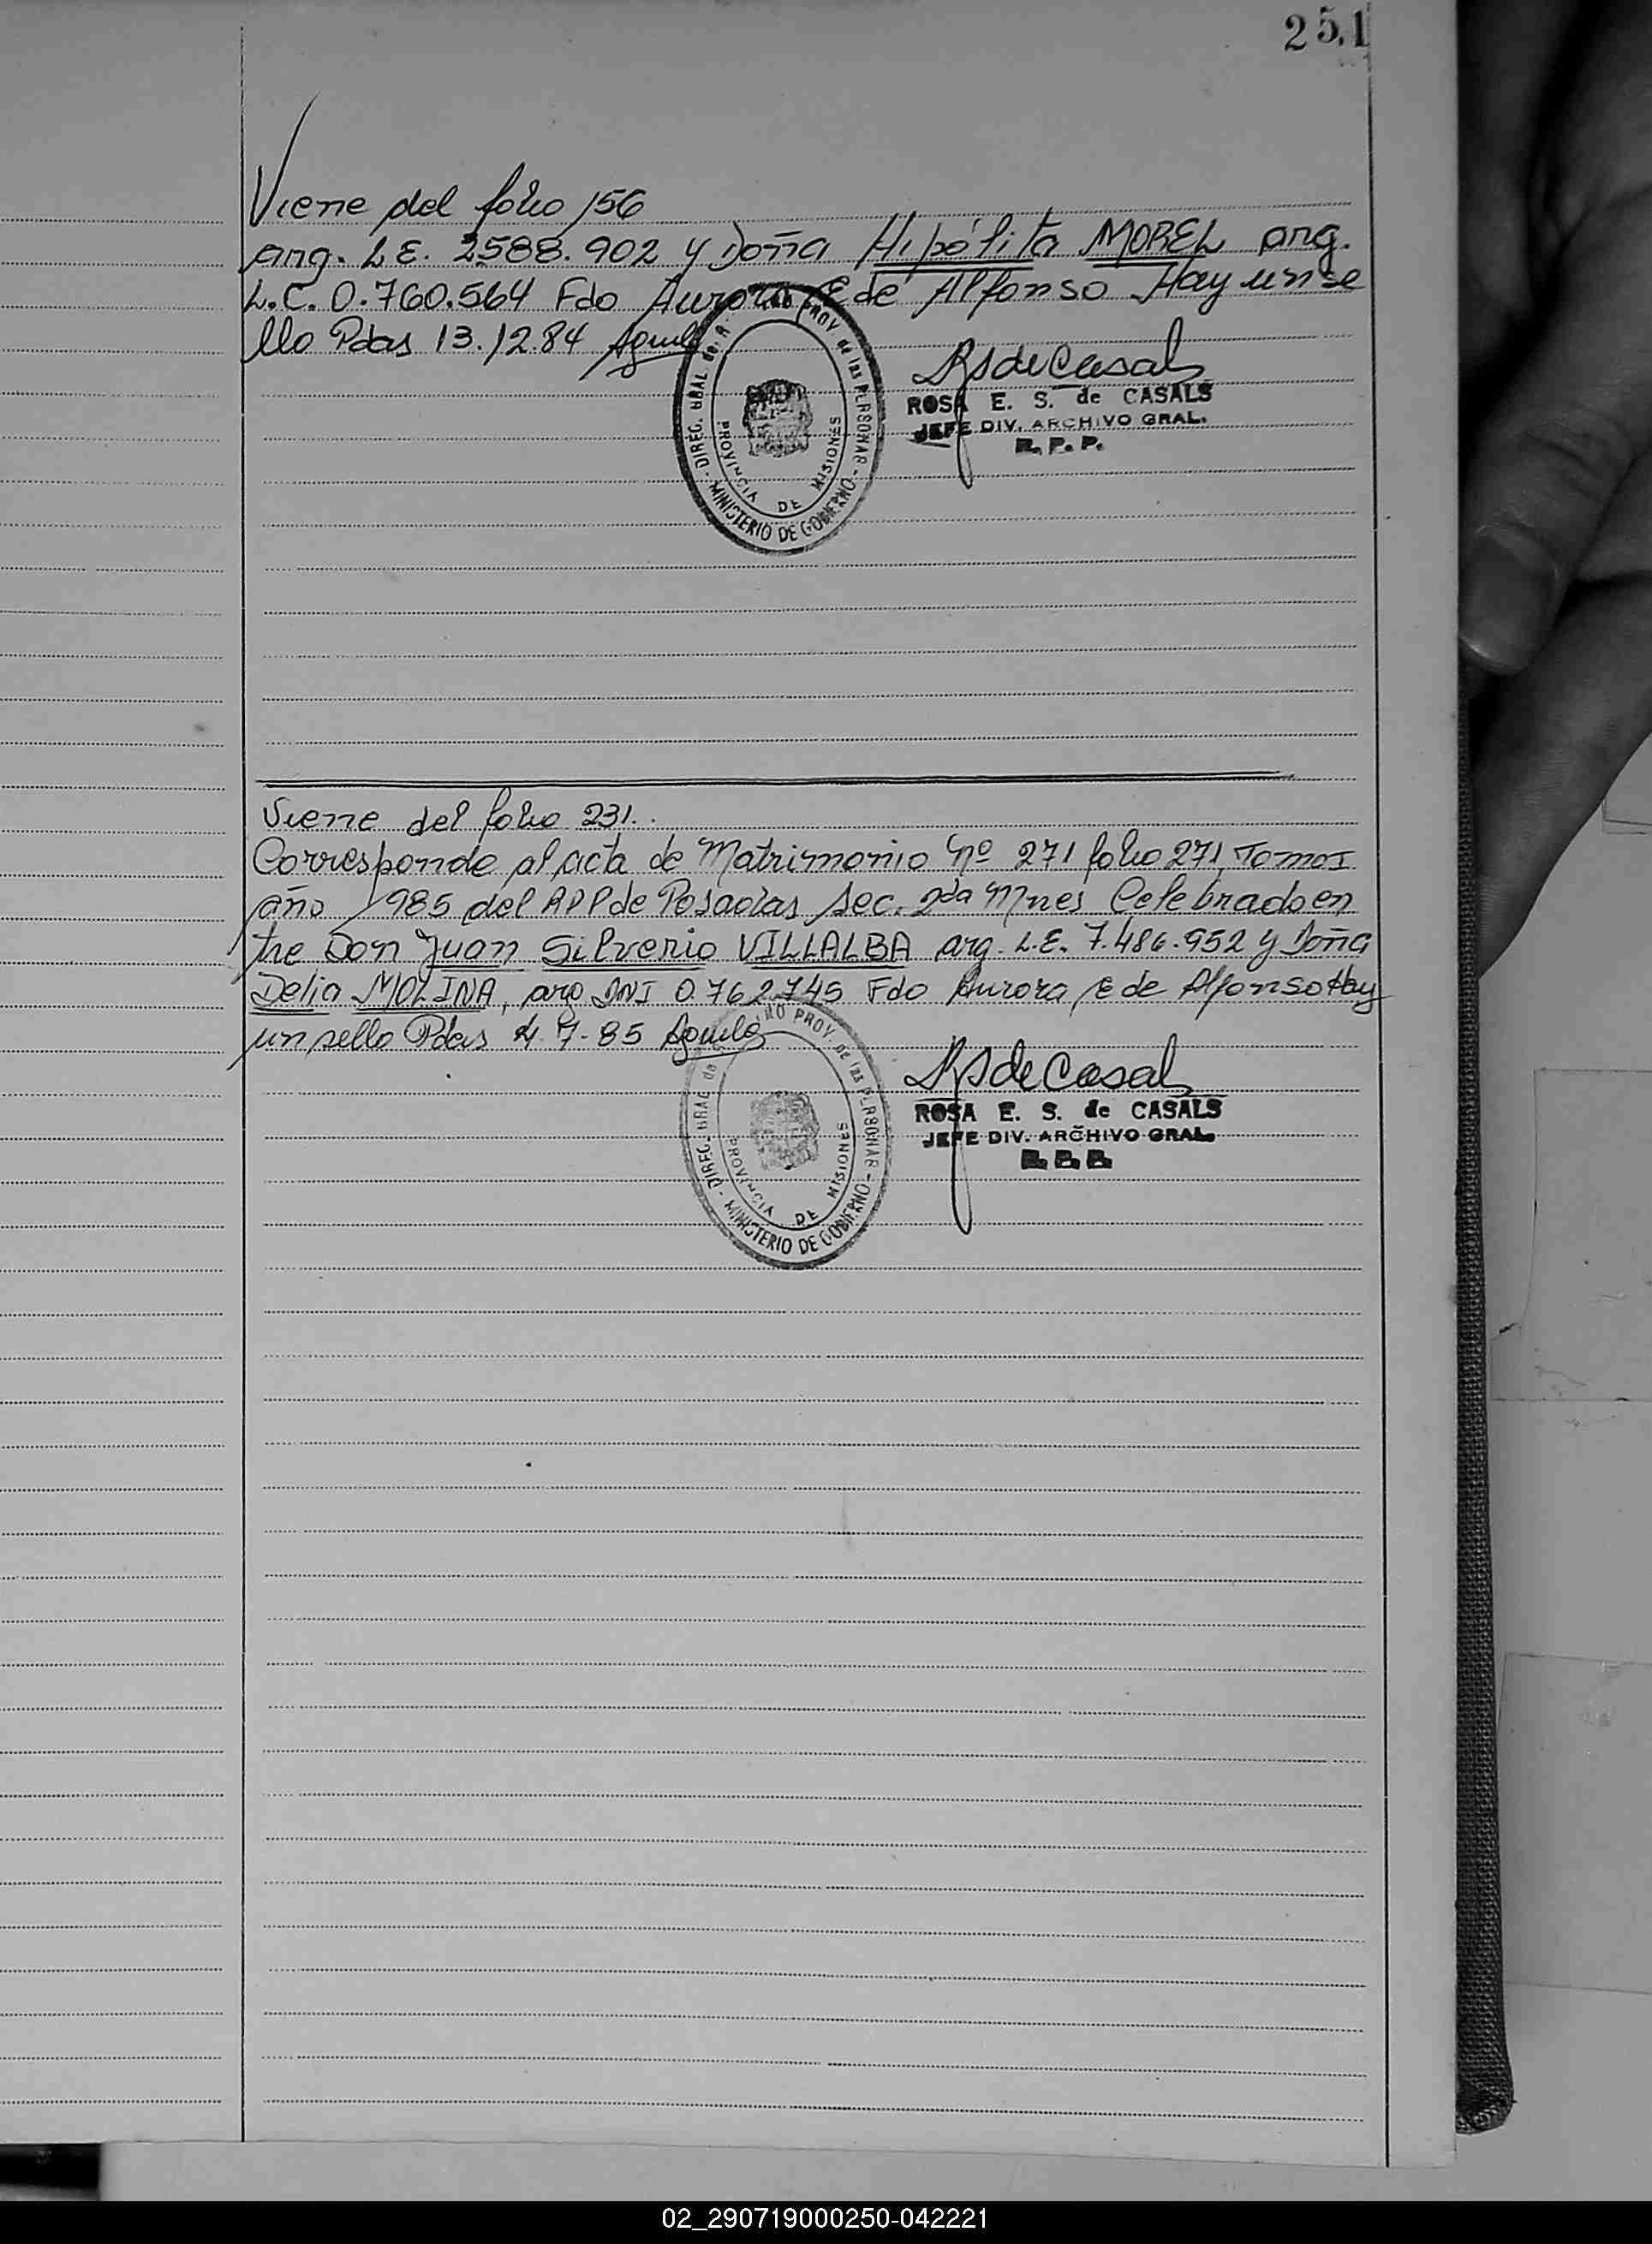 251
Viene del folio 156
arg. L.E. 2588.902 y Doña Hipólita MOREL arg.
L.C. 0.760.564 Fdo Aurora E de Alfonso Hay un se
llo Pdas 13.12.84
ROSA E. S. de CASALS
JEFE DIV. ARCHIVO GRAL.
R. P. P.
PROV. de las PERSONAS
MINISTERIO DE GOBIERNO
PROVINCIA DE MISIONES
Viene del folio 231.
Corresponde al acta de Matrimonio Nº 271 folio 271 Tomo I
año 1985 del RPP de Posadas Sec. 2da Mnes Celebrado en
tre Don Juan Silverio VILLALBA arg. L.E. 7.486.952 y Doña
Delia MOLINA, arg DNI 0.762.745 Fdo Aurora E de Alfonso Hay
un sello Pdas 4.7-85
PROV. de las PERSONAS
MINISTERIO DE GOBIERNO
PROVINCIA DE MISIONES
ROSA E. S. de CASALS
JEFE DIV. ARCHIVO GRAL.
02_290719000250-042221